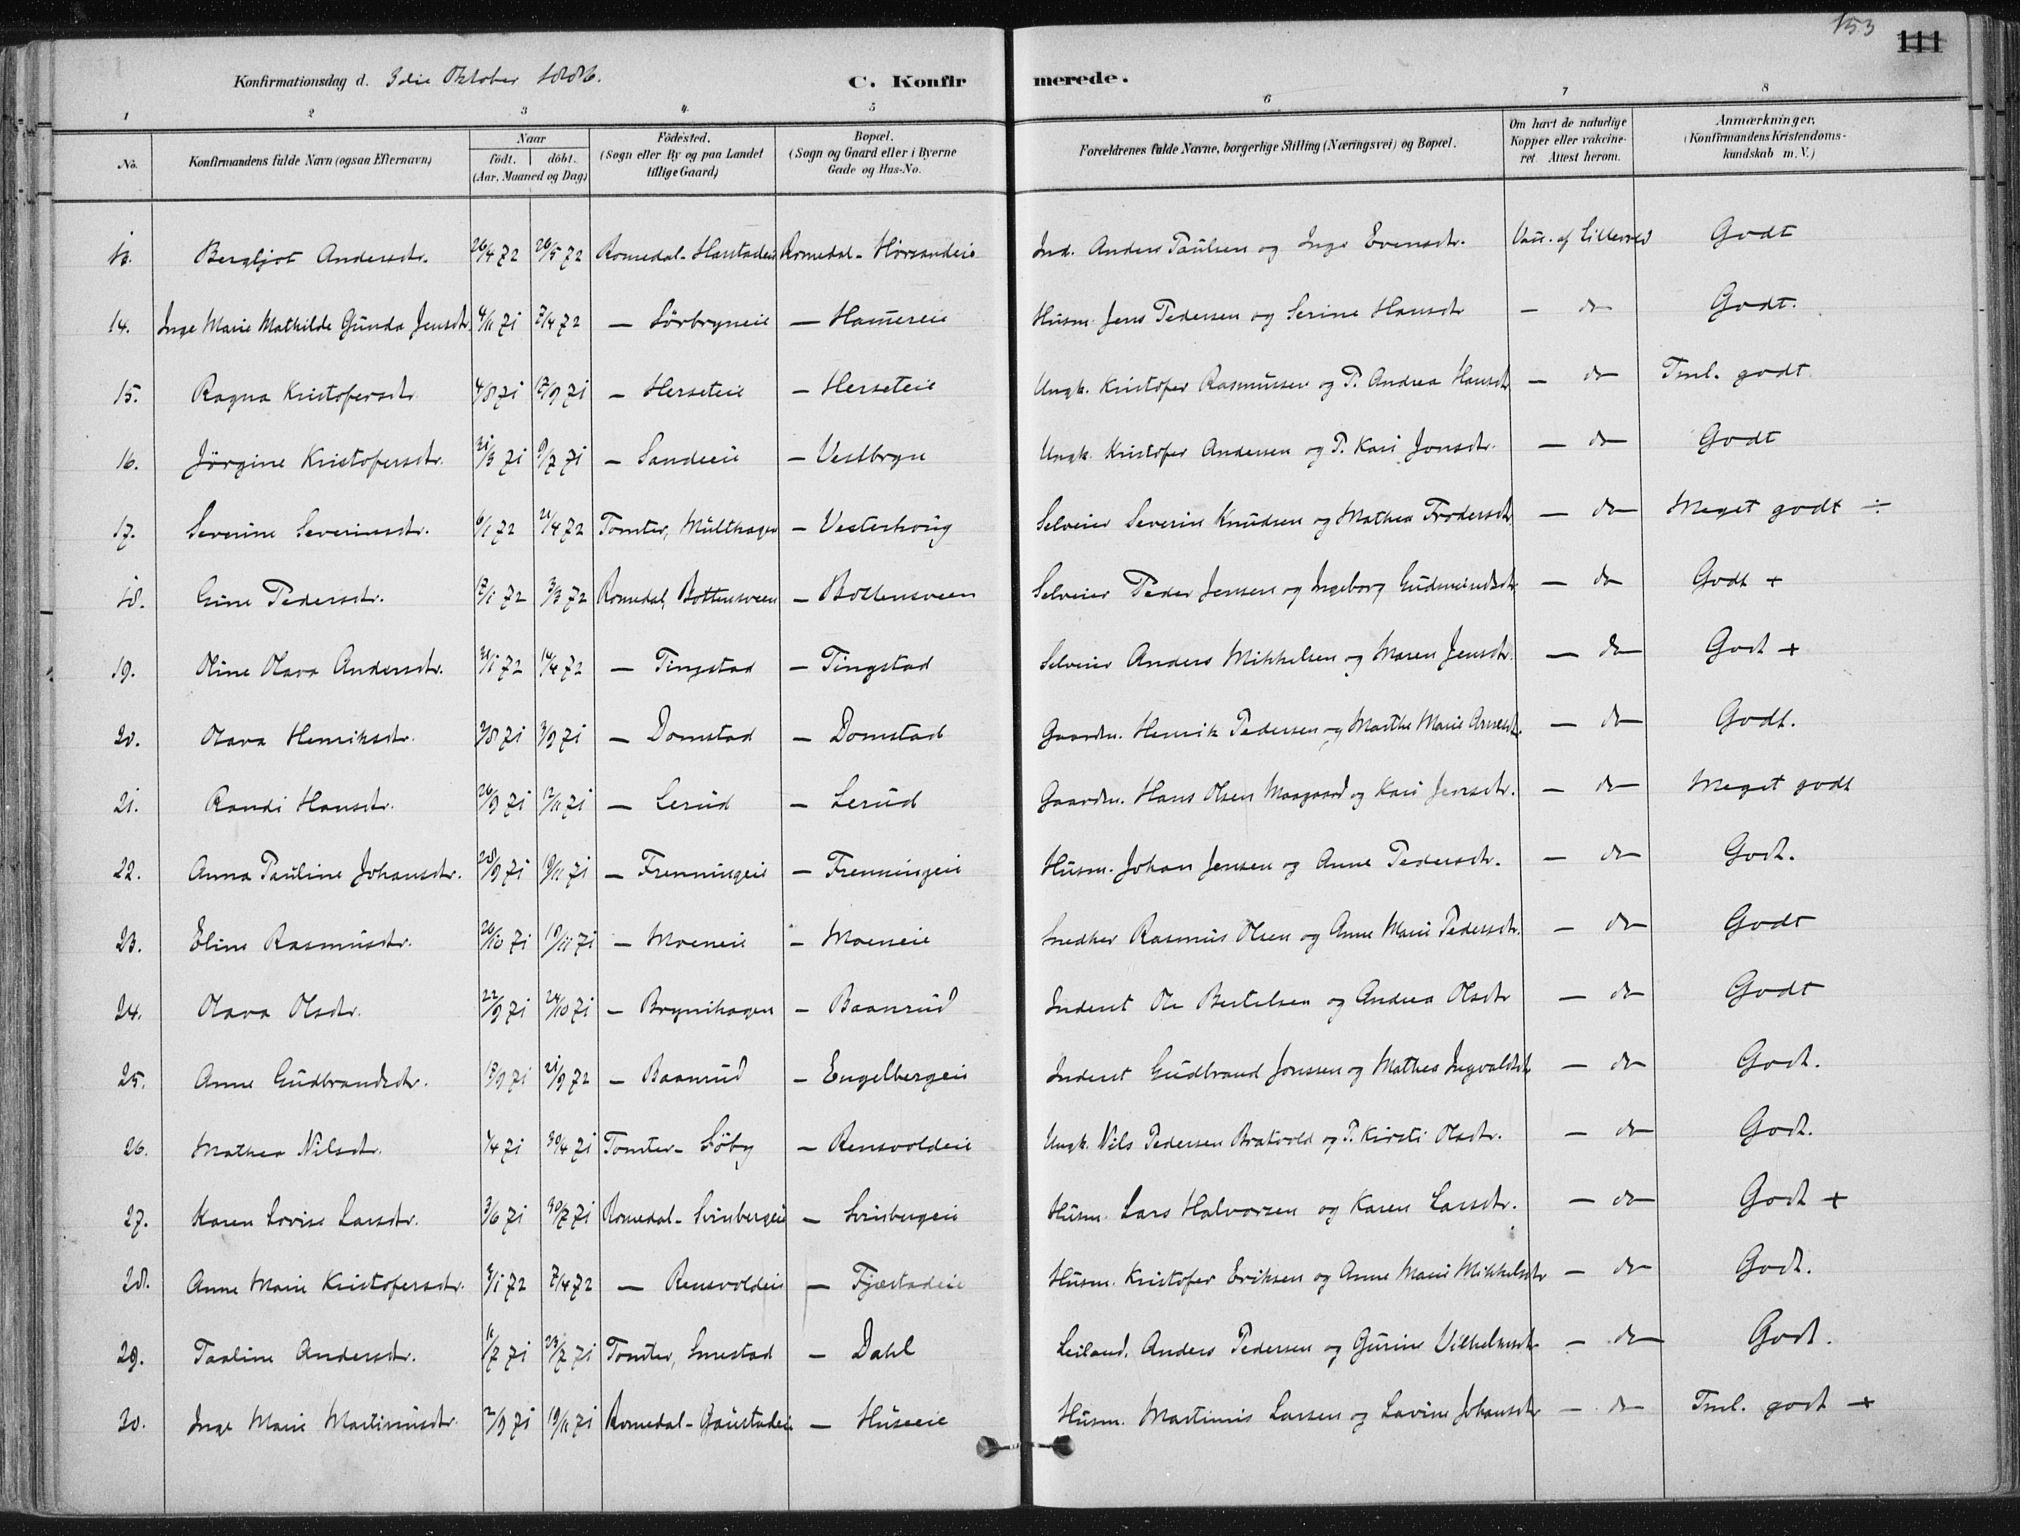 153
111
Konfirmationsdag d. 3die Oktober 1886.
C. Konfirmerede.
1 2 3 4 5 6 7 8
No. | Konfirmandens fulde Navn (ogsaa Efternavn) | Naar født. | døbt. (Aar, Maaned og Dag) | Fødested. (Sogn eller By og paa Landet tillige Gaard) | Bopæl. (Sogn og Gaard eller i Byerne Gade og Hus-No. | Forældrenes fulde Navne, borgerlige Stilling (Næringsvei) og Bopæl. | Om havt de naturlige Kopper eller vakcineret. Attest herom. | Anmærkninger. (Konfirmandens Kristendomskundskab m. V.)
13. Bergljot Andersdtr. 26/4 72 26/5 72 Romedal - Harstadeie Romedal - Hørsandeie Ind. Anders Paulsen og Inge Evensdtr. Vac. af Lillevold Godt
14. Inge Marie Mathilde Gunda Jensdtr. 4/11 71 7/4 72 — Sörbryneie — Hamereie Husm. Jens Pedersen og Serine Hansdtr — do — Godt.
15. Ragna Kristofersdtr 4/8 71 17/9 71 — Herseteie — Herseteie Ungk. Kristofer Rasmussen og P. Andrea Hansdtr — do Tml. godt
16. Jörgine Kristofersdtr. 31/3 71 9/7 71 — Sandeeie — Vestbryn Ungk. Kristofer Andersen og P. Kari Jonsdtr. — do — Godt
17. Severine Severinsdtr. 6/1 72 21/4 72 Tomter, Multhagen — Vesterhoug Selveier Severin Knudsen og Mathea Frodersdtr — do — Meget godt ÷
18. Gine Pedersdtr. 17/1 72 3/3 72 Romedal, Bottensveen — Bottensveen Selveier Peder Jensen og Ingeborg Gudmundsdtr. — do Godt +
19. Oline Olava Andersdtr. 31/1 72 14/4 72 — Tingstad — Tingstad Selveier Anders Mikkelsen og Maren Jensdtr. — do — Godt +
20. Olava Henriksdtr. 2/8 71 3/9 71 — Domstad — Domstad Gaardm. Henrik Pedersen og Marthe Marie Arnesdtr. — do — Godt.
21. Randi Hansdtr. 26/9 71 12/11 71 — Lerud — Lerud Gaardm. Hans Olsen Maagaard og Kari Jensdtr. — do — Meget godt
22. Anna Pauline Johansdtr. 28/9 71 19/11 71 — Frenningeie — Frenningeie Husm. Johan Jensen og Anne Pedersdtr. — do — Godt.
23. Eline Rasmusdtr. 20/10 71 19/11 71 — Moeneie — Moeneie Snedker Rasmus Olsen og Anne Marie Pedersdtr. — do — Godt
24. Olava Olsdtr. 22/9 71 24/10 71 — Brynihagen — Baanrud Inderst Ole Bertelsen og Andrea Olsdtr — do — Godt
25. Anne Gudbrandsdtr. 13/9 71 21/9 72 — Baanrud — Engelbergeie Inderst Gudbrand Jonssen og Mathea Ingvaldsdtr — do — Godt.
26. Mathea Nilsdtr. 1/4 71 30/4 71 Tomter - Söby — Rensvoldeie Ungk. Nils Pedersen Bratvold og P. Kirsti Olsdtr. — do — Godt.
27. Karen Lovise Larsdtr. 3/6 71 30/7 71 Romedal - Svinbergeie — Svinbergeie Husm. Lars Halvorsen og Karen Larsdtr. — do — Godt +
28. Anne Marie Kristofersdtr. 3/1 72 7/4 72 — Rensvoldeie — Fjæstadeie Husm. Kristofer Eriksen og Anne Marie Mikkelsdtr — do — Godt.
29. Taaline Andersdtr. 11/7 71 23/7 71 Tomter, Smestad — Dahl Leiland. Anders Pedersen og Gurine Vilhelmsdtr — do — Godt.
30. Inge Marie Martinusdtr. 2/9 71 19/11 71 Romedal - Gaustadeie — Huseeie Husm. Martinus Larsen og Lavine Johansdtr — do — Tml. godt +